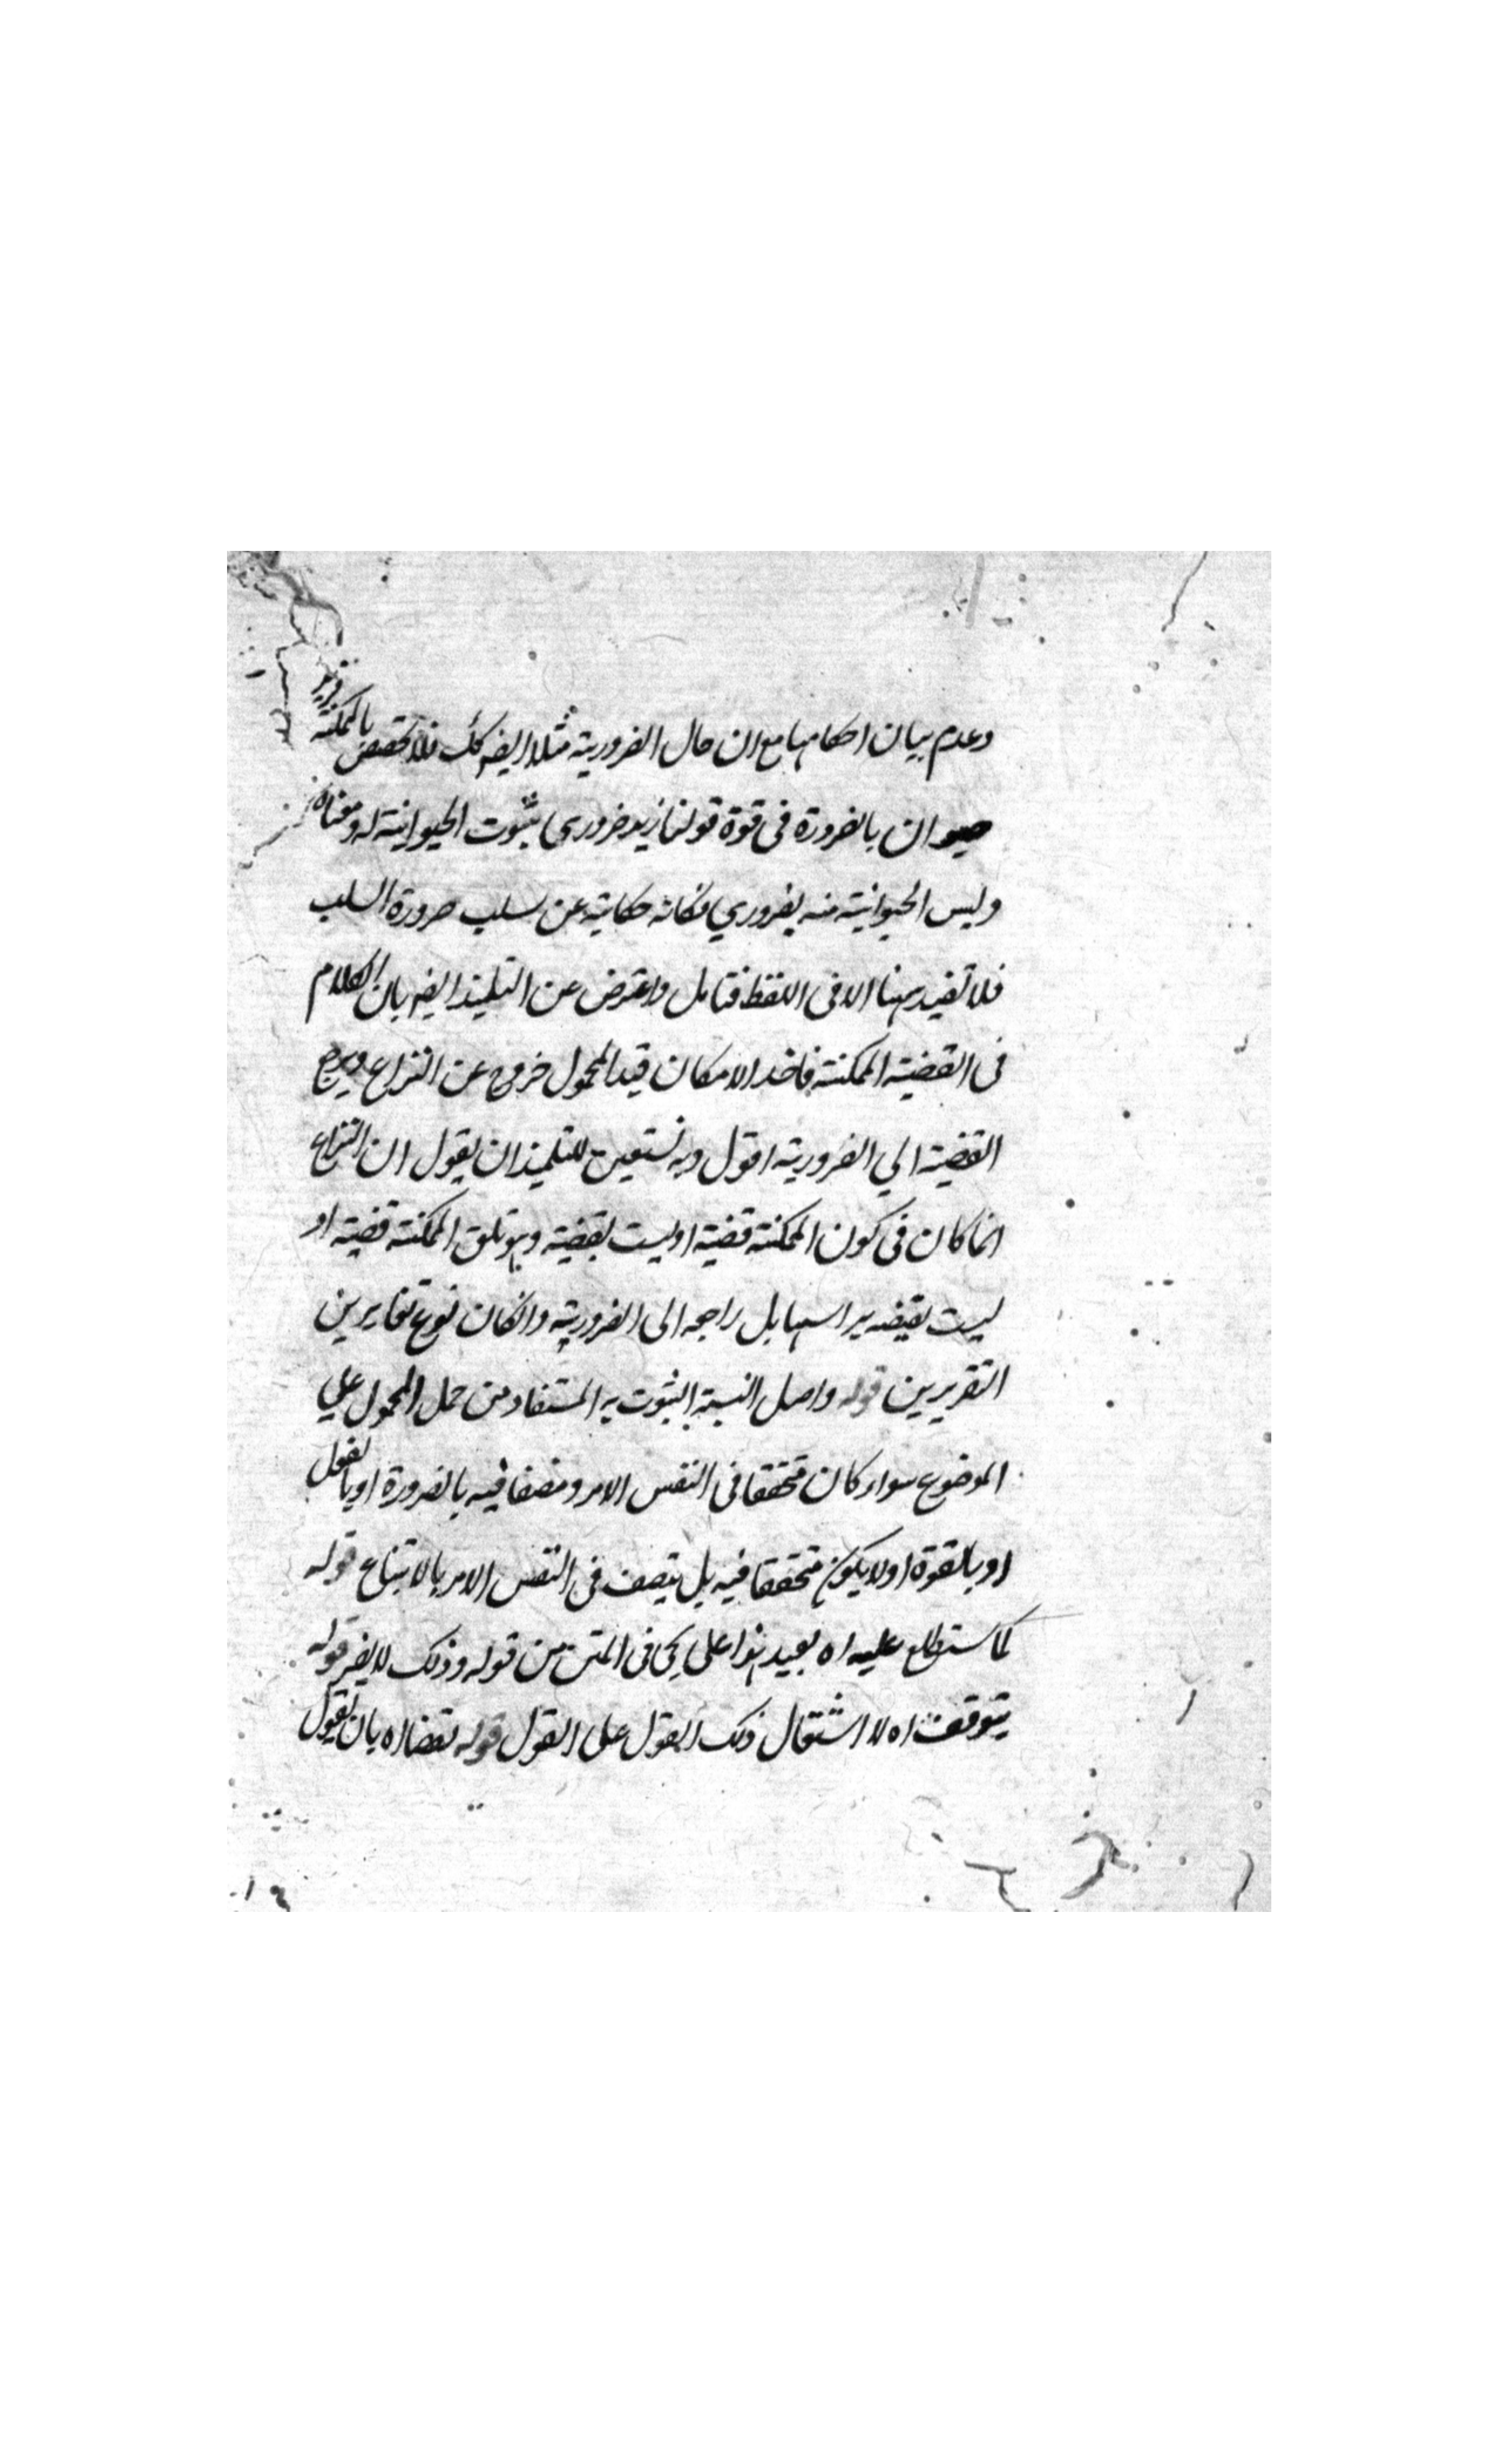 وعدم بيان احكامها مع ان حال الضرورية مثلا ايضه كك فلا تخصص بالممكنة فزيد
حيوان بالضرورة فى قوة قولنا زيد ضروري ثبوت الحيوانية له ومعناه
وليس الحيوانية منه بضروري فكانه حكاية عن سلب ضرورة السلب
فلا تفيد ههنا الا فى اللفظ فتامل واعترض عن التلميذ ايضه بان الكلام
فى القضية الممكنة فاخذ الامكان قيد المحمول خروج عن النزاع ويرجع
القضية الي الضرورية اقول وبه نستعين للتلميذ ان يقول ان النزاع
انما كان فى كون الممكنة قضية اوليست بقضية وتلك الممكنة قضية او
ليست بقضيه براسها بل راجعه الى الضرورية وانكان نوع تغاير بين
التقريرين قوله واصل النسبة الثبوتيه المستفاد من حمل المحمول علي
الموضوع سواء كان متحققا فى النفس الامر ومتصفا فيه بالضرورة او بالفعل
او بالقوة او لا يكون متحققا فيه بل يتصف فى النفس الامر بالامتناع قوله
كما ستطلع عليه اه بعيد هذا على يجى فى المتن من قوله وذلك لا يضر قوله
يتوقف اه لا اشتمال ذلك القول على القول قوله نقضا اه بان نقول